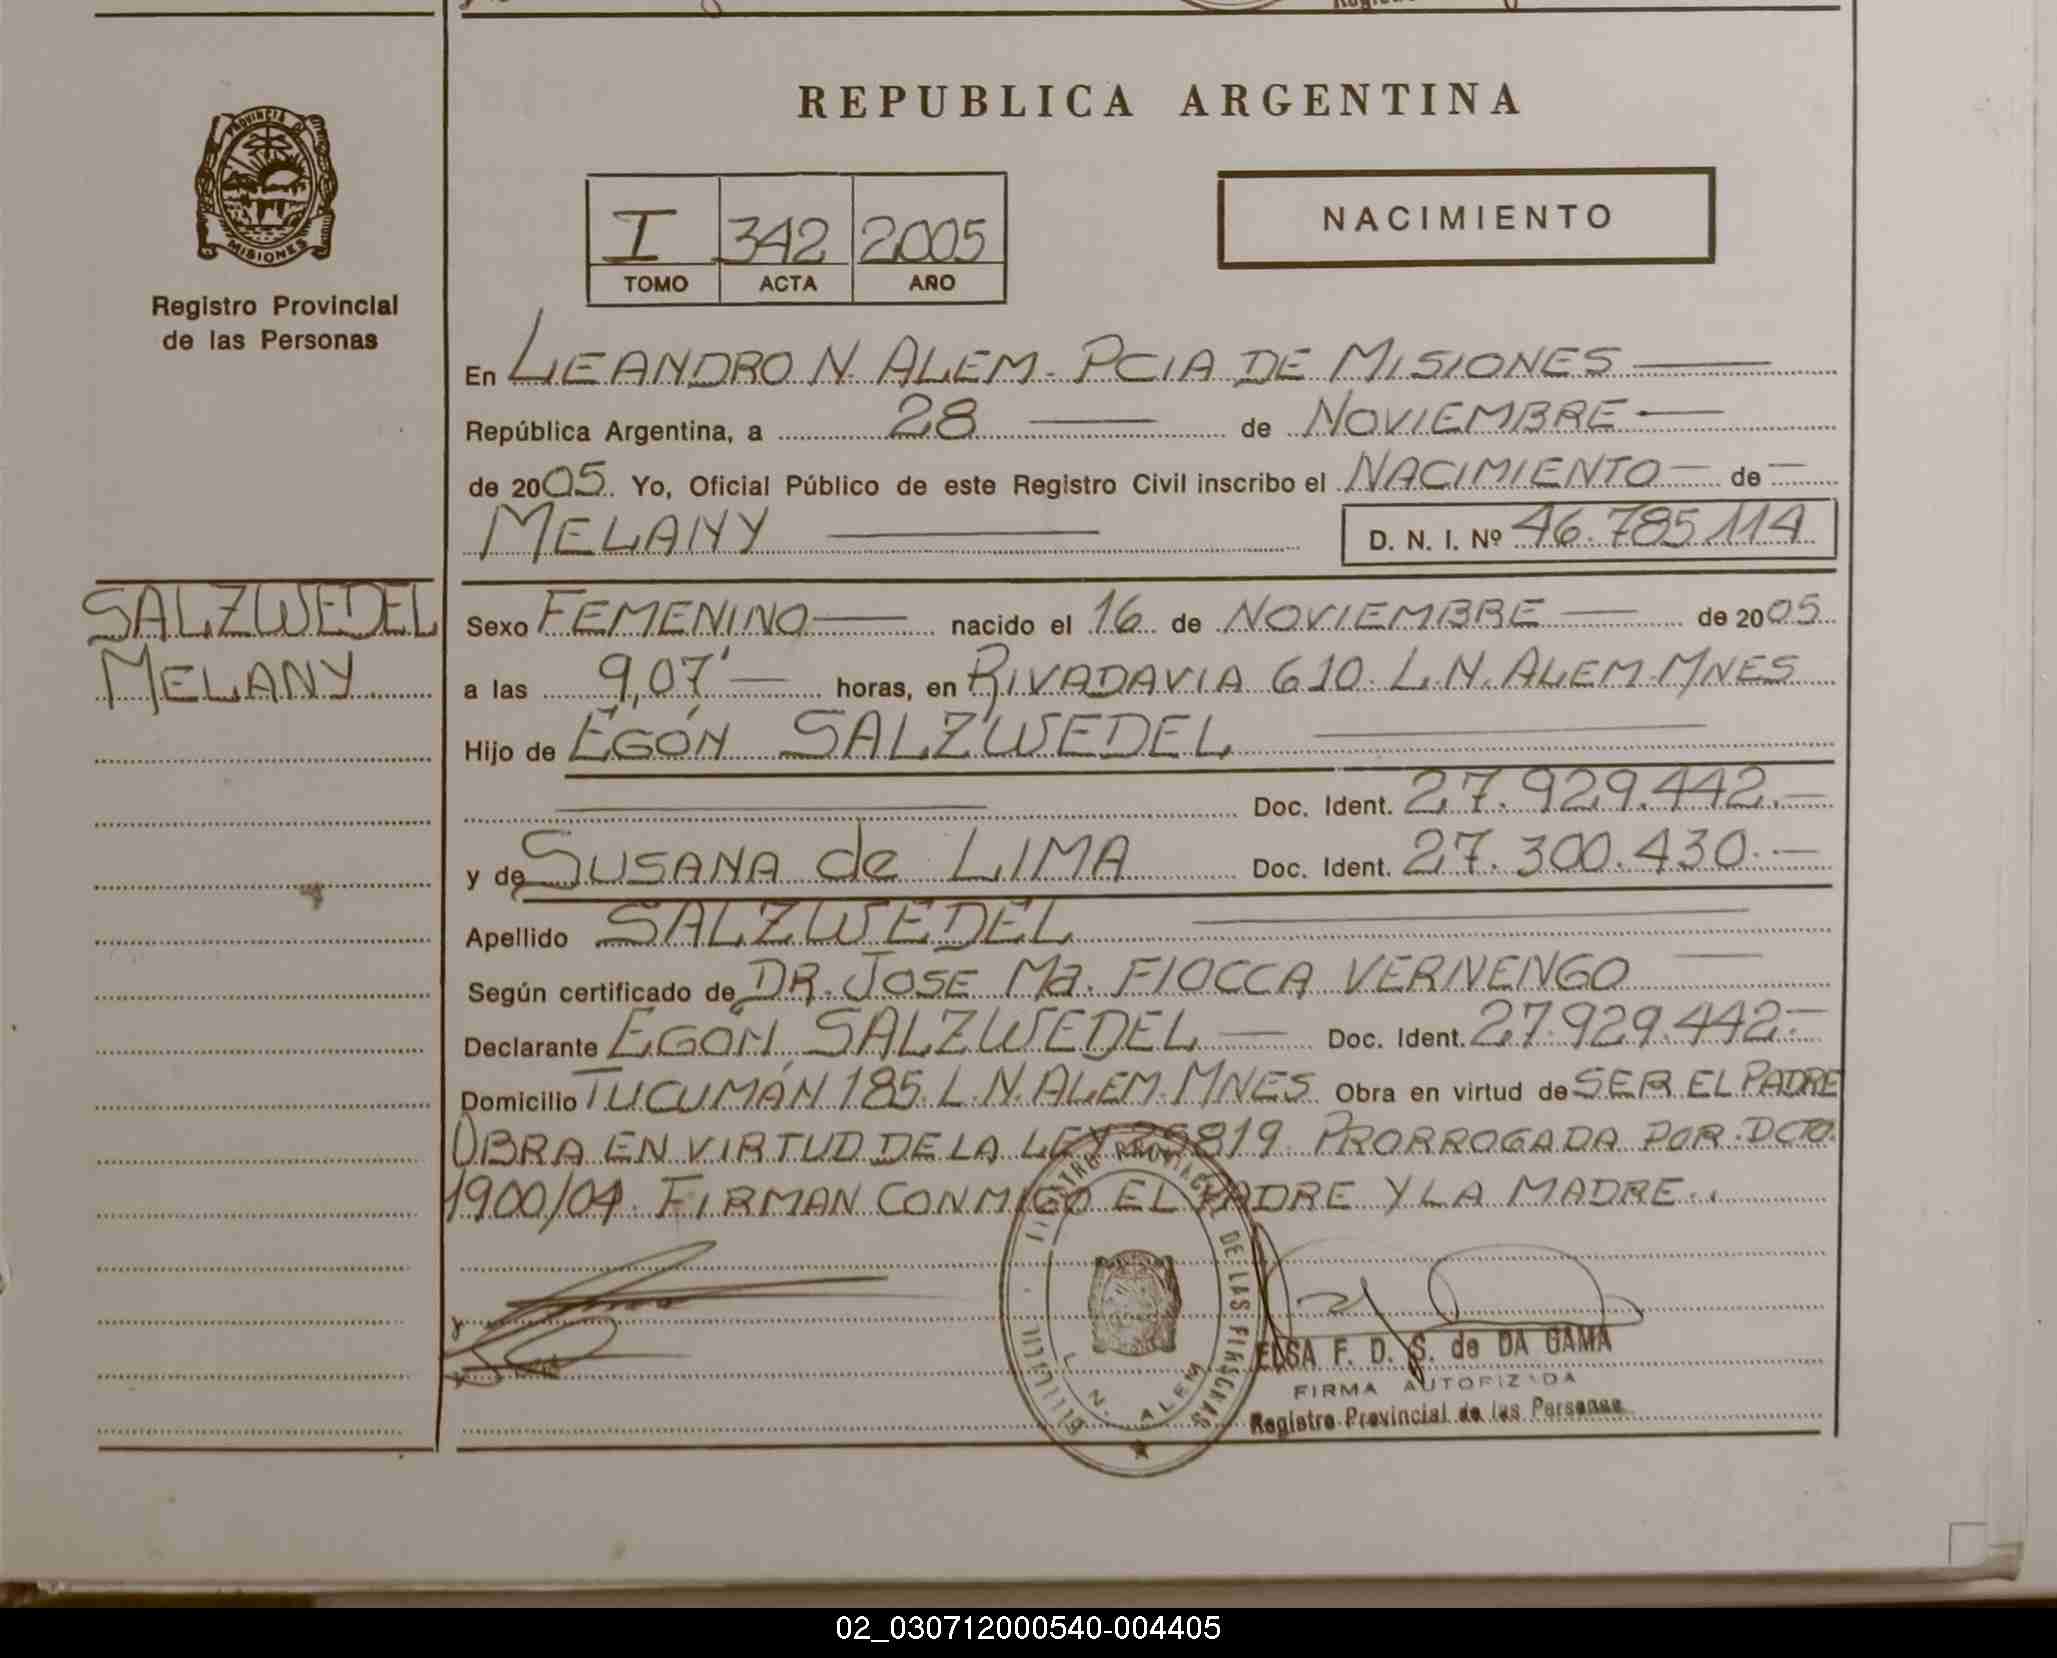 REPUBLICA ARGENTINA
PROVINCIA DE MISIONES
Registro Provincial
de las Personas
I 342 2005
TOMO ACTA AÑO
NACIMIENTO
En LEANDRO N. ALEM. PCIA DE MISIONES
República Argentina, a 28 de NOVIEMBRE
de 2005. Yo, Oficial Público de este Registro Civil inscribo el NACIMIENTO de
MELANY D. N. I. Nº 46.785.114
SALZWEDEL
MELANY
Sexo FEMENINO nacido el 16 de NOVIEMBRE de 2005
a las 9,07' horas, en RIVADAVIA 610. L.N. ALEM. MNES
Hijo de EGÓN SALZWEDEL
Doc. Ident. 27.929.442.-
y de SUSANA de LIMA Doc. Ident. 27.300.430.-
Apellido SALZWEDEL
Según certificado de DR. JOSE Ma. FIOCCA VERNENGO
Declarante EGÓN SALZWEDEL Doc. Ident. 27.929.442.-
Domicilio TUCUMÁN 185. L.N. ALEM. MNES Obra en virtud de SER EL PADRE
OBRA EN VIRTUD DE LA LEY 25819. PRORROGADA POR DCTO.
1900/04. FIRMAN CONMIGO EL PADRE Y LA MADRE..
DE LAS PERSONAS
L. N. ALEM
ELSA F. D. S. de DA GAMA
FIRMA AUTORIZADA
Registro Provincial de las Personas
02_030712000540-004405